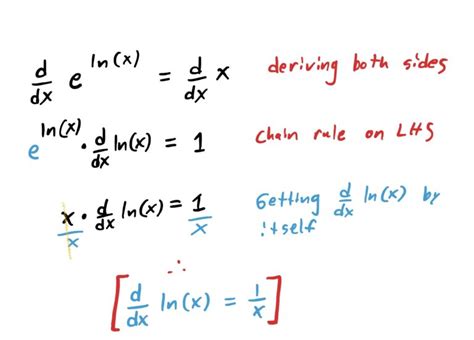 d/dx e^ln(x) = d/dx x deriving both sides
e^ln(x) · d/dx ln(x) = 1 chain rule on LHS
x/x · d/dx ln(x) = 1/x Getting d/dx ln(x) by itself
∴
[d/dx ln(x) = 1/x]